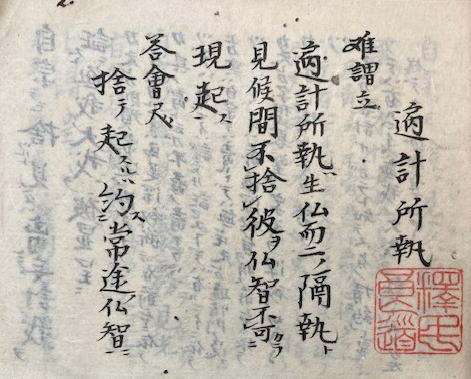 遍計所執
難謂立
遍計所執ハ生仏而二ノ隔執ト
見候間不捨彼ヲ仏智不可カラニ
現起ス
答會尺
捨テ起スハ約ニス常途仏智ニ